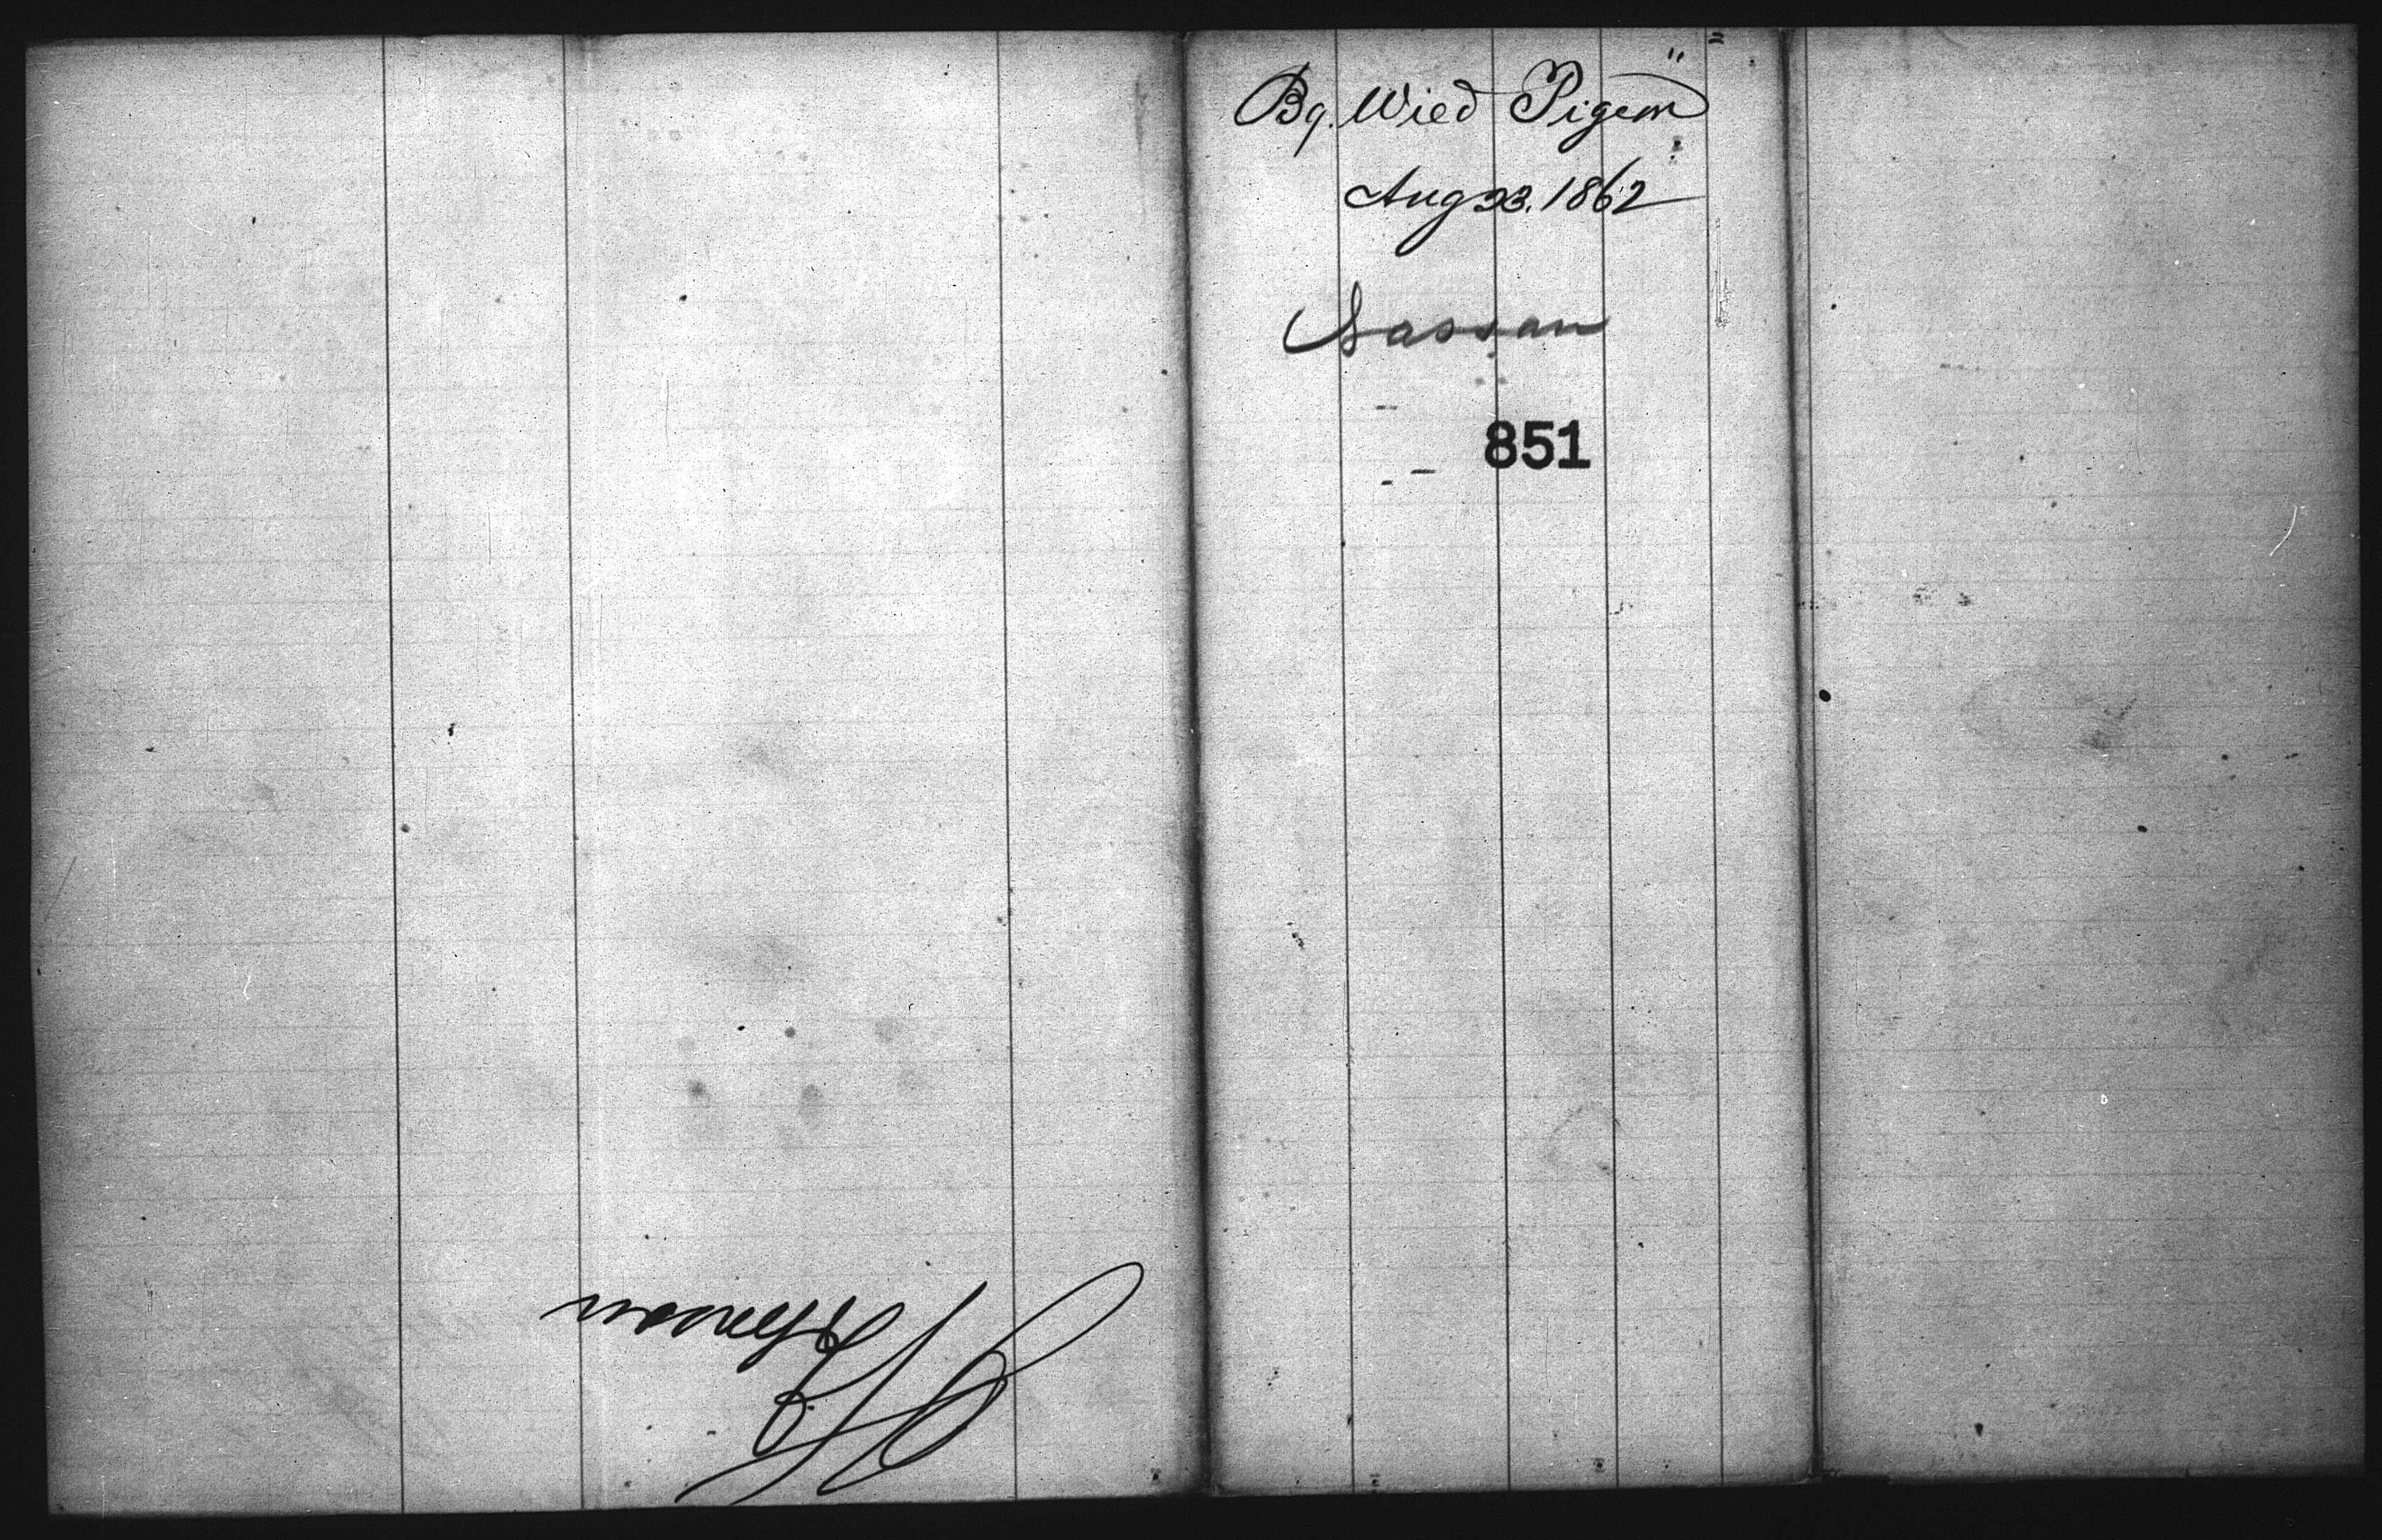 Bq. Wied Pigeon"
Aug 23. 1862
Nassau
851
Johnson